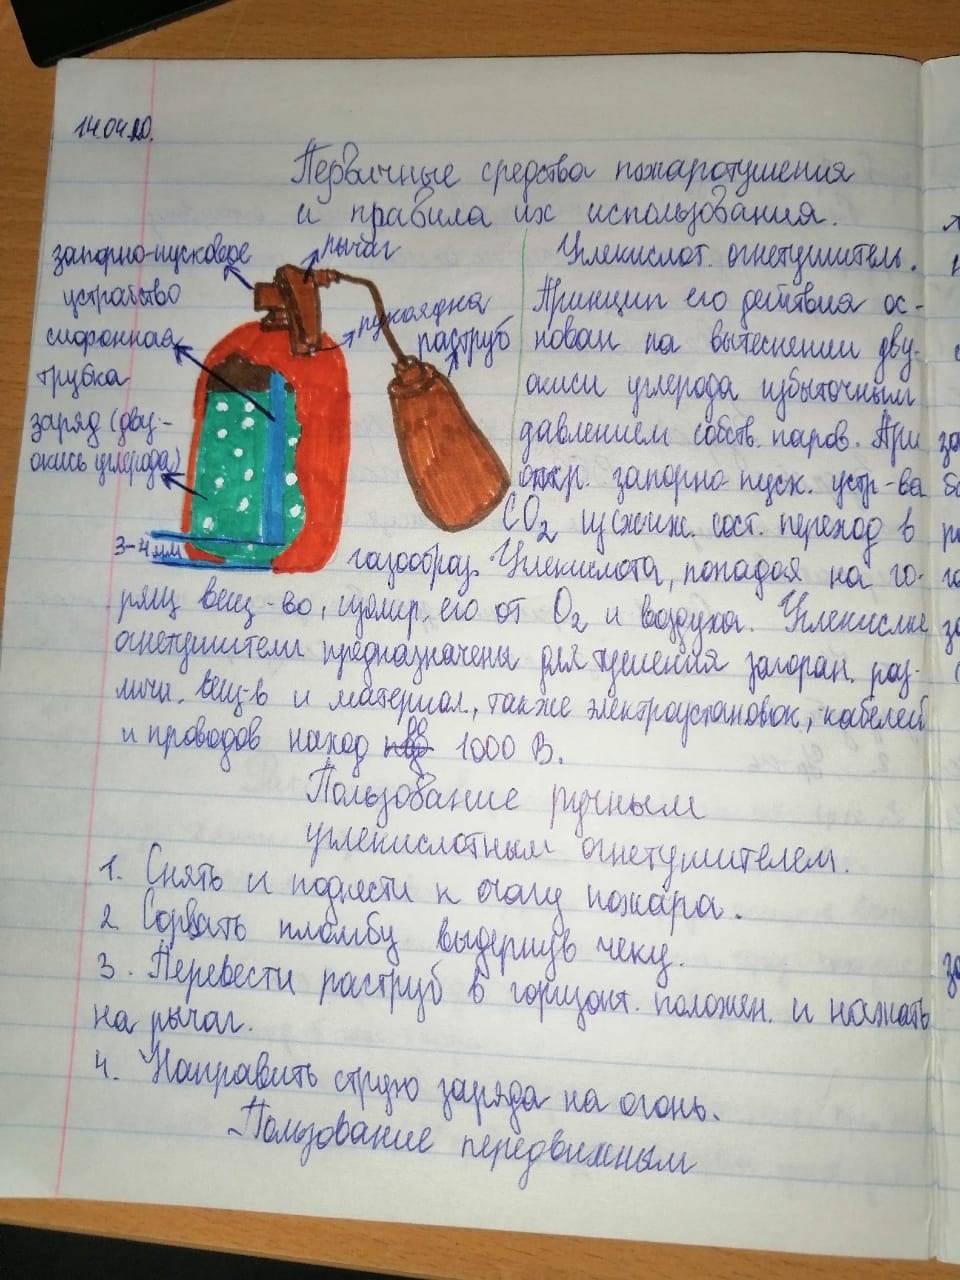 14.04.20.
Первичные средства пожаротушения
и правила их использования.
запорно-пусковое
устройство
сифонная
трубка
заряд (дву-
окись углерода)
3-4 мм
рычаг
рукоядка
раструб
Углекислот. огнетушитель.
Принцип его действия ос-
нован на вытеснении дву-
окиси углерода избыточным
давлением собств. паров. При
откр. запорно-пуск. устр-ва
CO2 из сжиж. сост. переход в
газообраз. Углекислота, попадая на го-
рящ вещ-во, изолир. его от O2 и воздуха. Углекислые
огнетушители предназначены для тушения загоран. раз-
личн. вещ-в и материал., также электроустановок, кабелей
и проводов наход 1000 В.
Пользование ручным
углекислотным огнетушителем.
1. Снять и поднести к очагу пожара.
2. Сорвать пломбу выдернув чеку.
3. Перевести раструб в горизонт. положен. и нажать
на рычаг.
4. Направить струю заряда на огонь.
Пользование передвижным